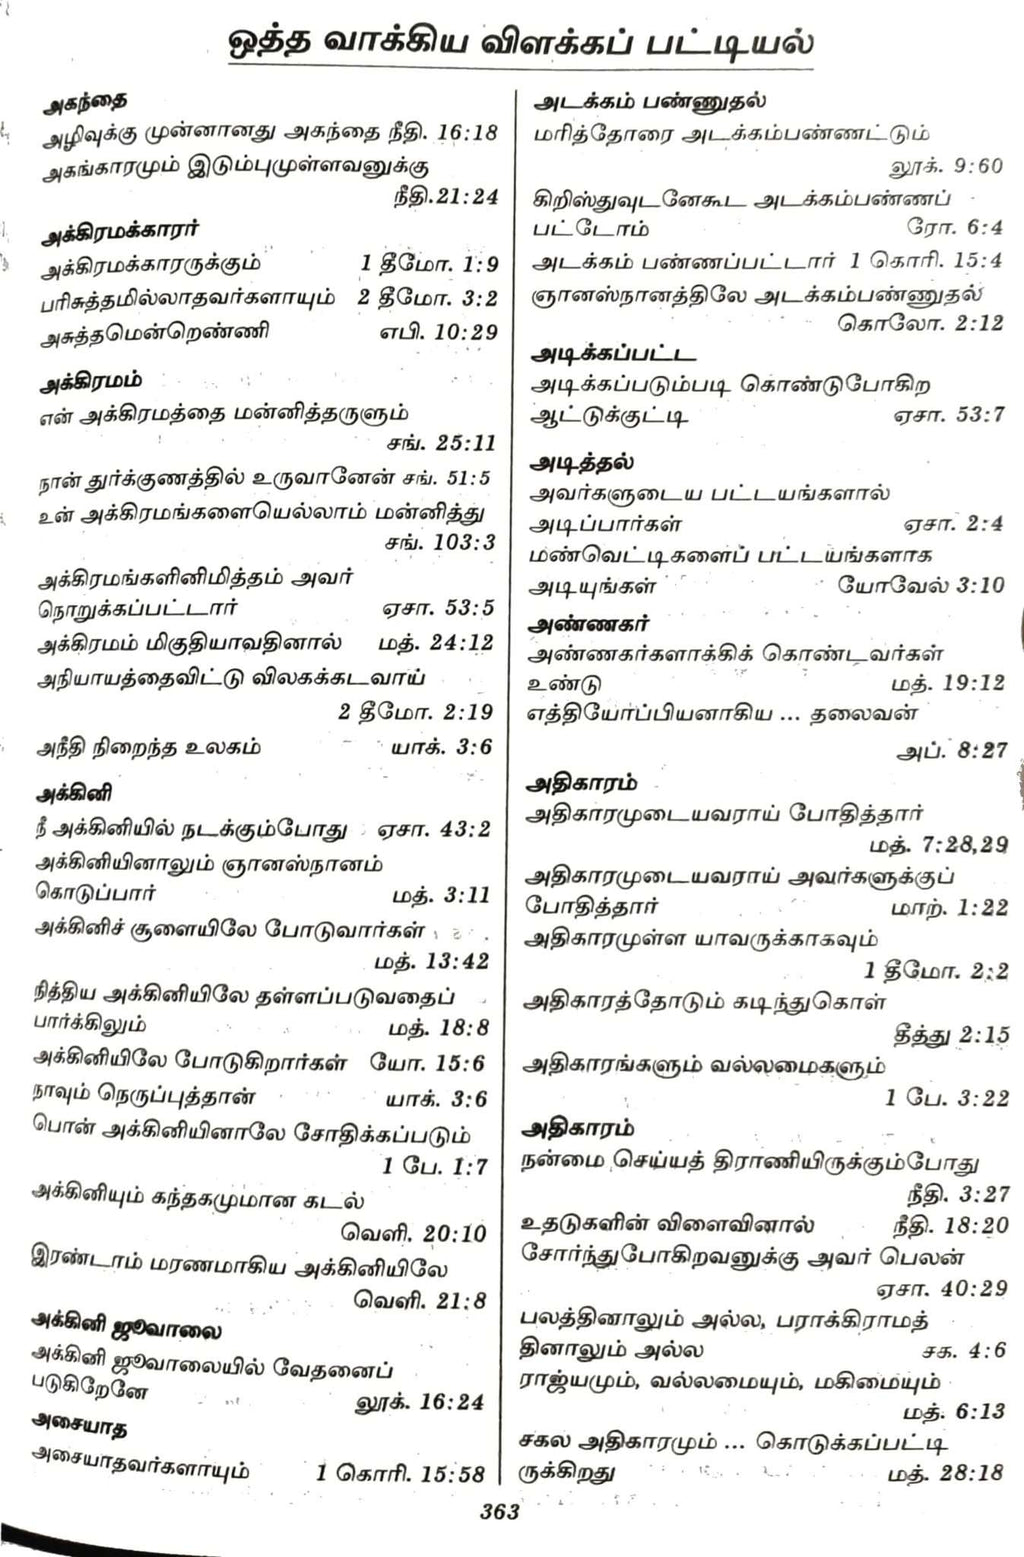 ஒத்த வாக்கிய விளக்கப் பட்டியல்
அகந்தை
அழிவுக்கு முன்னானது அகந்தை நீதி. 16:18
அகங்காரமும் இடும்புமுள்ளவனுக்கு
நீதி.21:24
அக்கிரமக்காரர்
அக்கிரமக்காரருக்கும் 1 தீமோ. 1:9
பரிசுத்தமில்லாதவர்களாயும் 2 தீமோ. 3:2
அசுத்தமென்றெண்ணி எபி. 10:29
அக்கிரமம்
என் அக்கிரமத்தை மன்னித்தருளும்
சங். 25:11
நான் துர்க்குணத்தில் உருவானேன் சங். 51:5
உன் அக்கிரமங்களையெல்லாம் மன்னித்து
சங். 103:3
அக்கிரமங்களினிமித்தம் அவர்
நொறுக்கப்பட்டார் ஏசா. 53:5
அக்கிரமம் மிகுதியாவதினால் மத். 24:12
அநியாயத்தைவிட்டு விலகக்கடவாய்
2 தீமோ. 2:19
அநீதி நிறைந்த உலகம் யாக். 3:6
அக்கினி
நீ அக்கினியில் நடக்கும்போது ஏசா. 43:2
அக்கினியினாலும் ஞானஸ்நானம்
கொடுப்பார் மத். 3:11
அக்கினிச் சூளையிலே போடுவார்கள்
மத். 13:42
நித்திய அக்கினியிலே தள்ளப்படுவதைப்
பார்க்கிலும் மத். 18:8
அக்கினியிலே போடுகிறார்கள் யோ. 15:6
நாவும் நெருப்புத்தான் யாக். 3:6
பொன் அக்கினியினாலே சோதிக்கப்படும்
1 பே. 1:7
அக்கினியும் கந்தகமுமான கடல்
வெளி. 20:10
இரண்டாம் மரணமாகிய அக்கினியிலே
வெளி. 21:8
அக்கினி ஜூவாலை
அக்கினி ஜூவாலையில் வேதனைப்
படுகிறேனே லூக். 16:24
அசையாத
அசையாதவர்களாயும் 1 கொரி. 15:58
அடக்கம் பண்ணுதல்
மரித்தோரை அடக்கம்பண்ணட்டும்
லூக். 9:60
கிறிஸ்துவுடனேகூட அடக்கம்பண்ணப்
பட்டோம் ரோ. 6:4
அடக்கம் பண்ணப்பட்டார் 1 கொரி. 15:4
ஞானஸ்நானத்திலே அடக்கம்பண்ணுதல்
கொலோ. 2:12
அடிக்கப்பட்ட
அடிக்கப்படும்படி கொண்டுபோகிற
ஆட்டுக்குட்டி ஏசா. 53:7
அடித்தல்
அவர்களுடைய பட்டயங்களால்
அடிப்பார்கள் ஏசா. 2:4
மண்வெட்டிகளைப் பட்டயங்களாக
அடியுங்கள் யோவேல் 3:10
அண்ணகர்
அண்ணகர்களாக்கிக் கொண்டவர்கள்
உண்டு மத். 19:12
எத்தியோப்பியனாகிய ... தலைவன்
அப். 8:27
அதிகாரம்
அதிகாரமுடையவராய் போதித்தார்
மத். 7:28,29
அதிகாரமுடையவராய் அவர்களுக்குப்
போதித்தார் மாற். 1:22
அதிகாரமுள்ள யாவருக்காகவும்
1 தீமோ. 2:2
அதிகாரத்தோடும் கடிந்துகொள்
தீத்து 2:15
அதிகாரங்களும் வல்லமைகளும்
1 பே. 3:22
அதிகாரம்
நன்மை செய்யத் திராணியிருக்கும்போது
நீதி. 3:27
உதடுகளின் விளைவினால் நீதி. 18:20
சோர்ந்துபோகிறவனுக்கு அவர் பெலன்
ஏசா. 40:29
பலத்தினாலும் அல்ல, பராக்கிராமத்
தினாலும் அல்ல சக. 4:6
ராஜ்யமும், வல்லமையும், மகிமையும்
மத். 6:13
சகல அதிகாரமும் ... கொடுக்கப்பட்டி
ருக்கிறது மத். 28:18
363